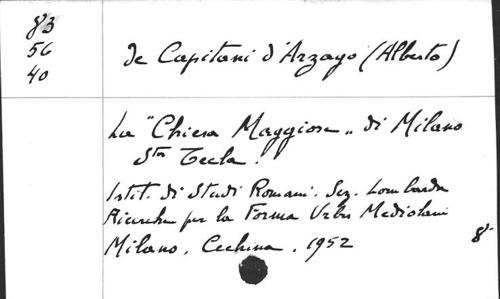 83
56
40
de Capitani d'Arzago (Alberto)
La "Chiesa Maggiore" di Milano
Sta Tecla.
Istit. di Studi Romani. Sez. Lombarda
Ricerche per la Forma Urbis Mediolani
Milano. Ceschina. 1952
8°